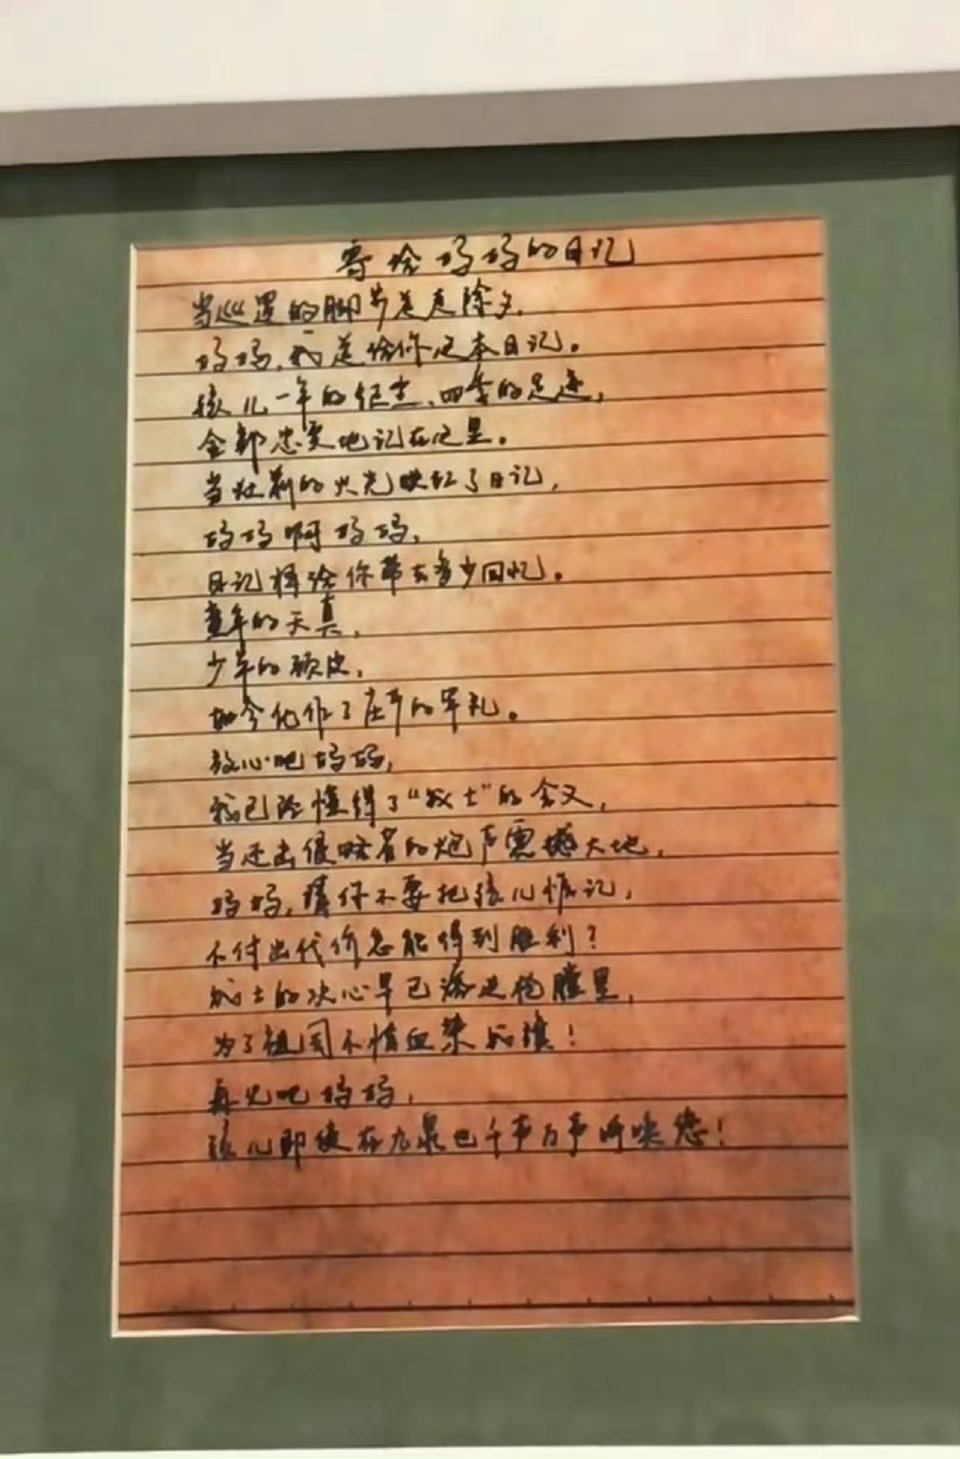 寄给妈妈的日记
当巡逻的脚步卷走除夕，
妈妈，我送给你这本日记。
孩儿一年的纪念、四季的足迹，
全部忠实地记在这里。
当灶前的火光映红了日记，
妈妈啊妈妈，
日记将给你带去多少回忆。
童年的天真，
少年的顽皮，
如今化作了庄严的军礼。
放心吧妈妈，
我已经懂得了“战士”的含义，
当还击侵略者的炮声震撼大地，
妈妈，请你不要把孩儿惦记，
不付出代价怎能得到胜利？
战士的决心早已溶进枪膛里，
为了祖国不惜血染战旗！
再见吧妈妈，
孩儿即使在九泉也千声万声呼唤您！